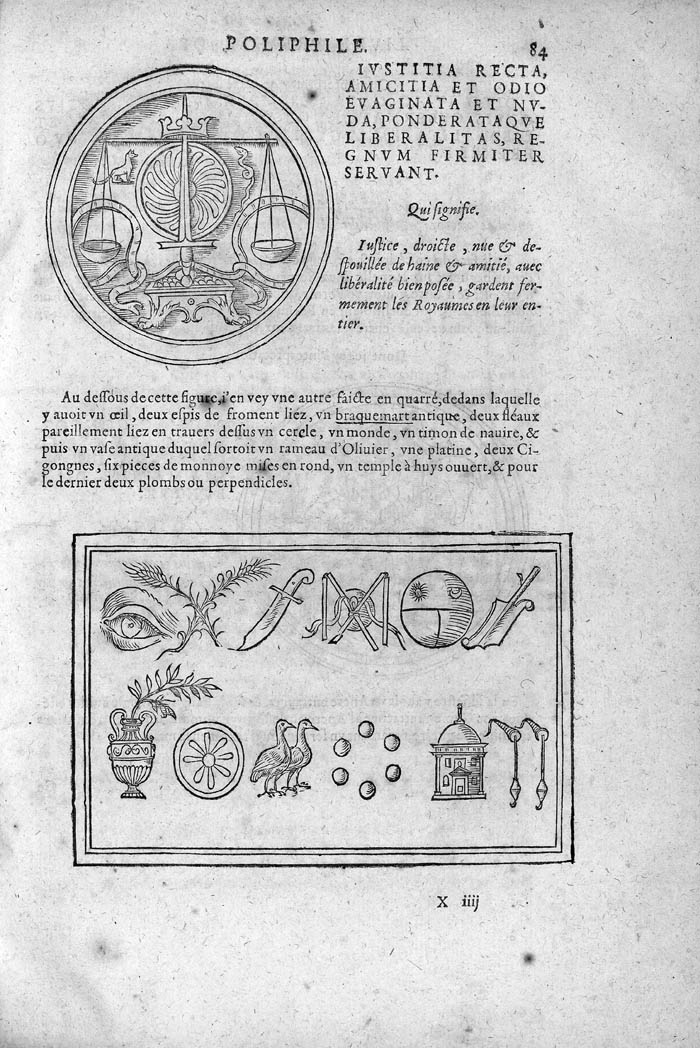 POLIPHILE. 84
IVSTITIA RECTA,
AMICITIA ET ODIO
EVAGINATA ET NV-
DA, PONDERATAQVE
LIBERALITAS, RE-
GNVM FIRMITER
SERVANT.
Qui signifie.
Iustice, droicte, nue & de-
spouillée de haine & amitié, auec
libéralité bien posée, gardent fer-
mement les Royaumes en leur en-
tier.
Au dessous de cette figure, i'en vey vne autre faicte en quarré, dedans laquelle
y auoit vn œil, deux espis de froment liez, vn braquemart antique, deux fléaux
pareillement liez en trauers dessus vn cercle, vn monde, vn timon de nauire, &
puis vn vase antique duquel sortoit vn rameau d'Oliuier, vne platine, deux Ci-
gongnes, six pieces de monnoye mises en rond, vn temple à huys ouuert, & pour
le dernier deux plombs ou perpendicles.
X iiij